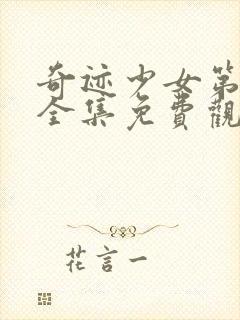 奇迹少女第
全集免費觀
花言一